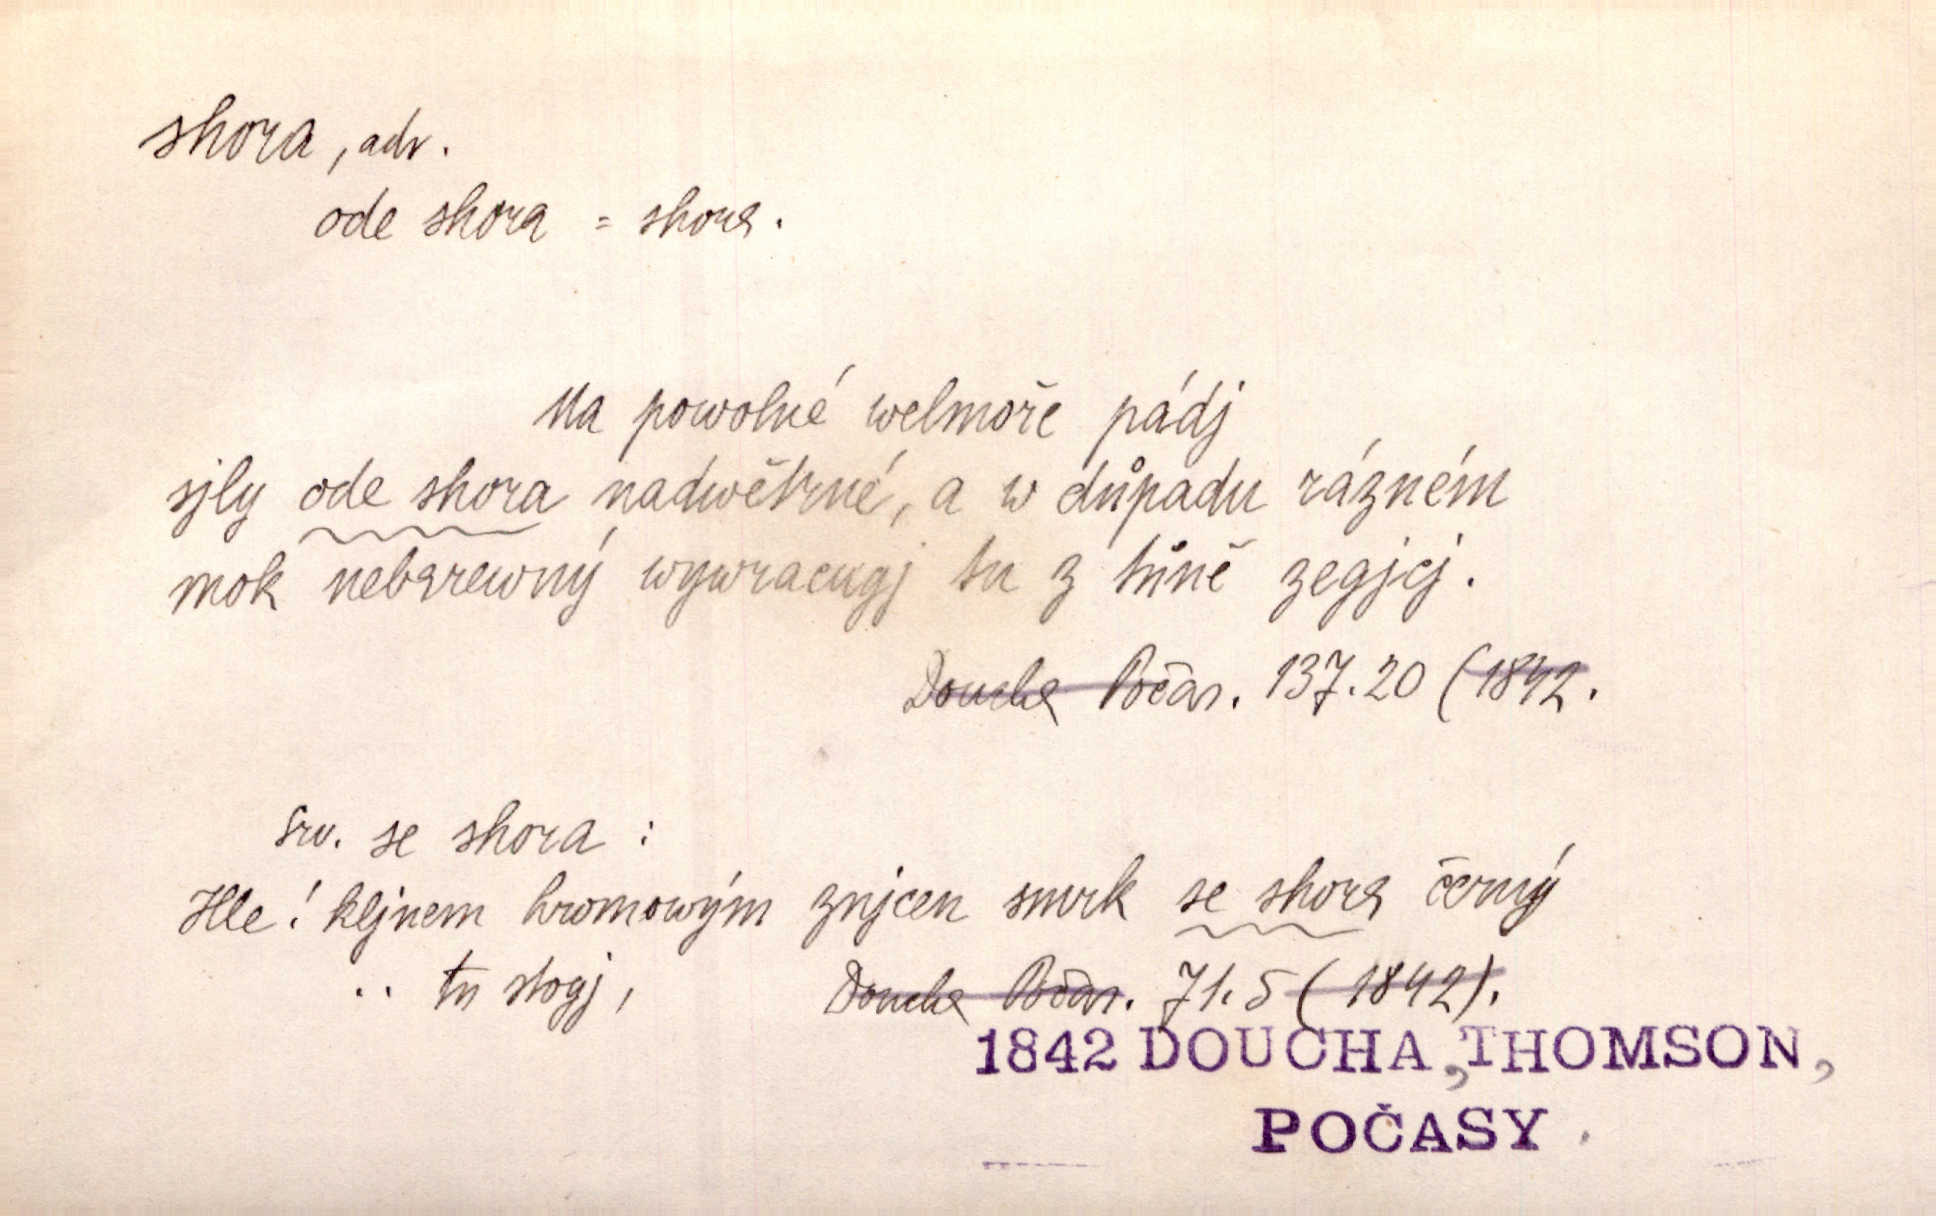 shora, adv.
ode shora = shora.
Na powolné welmoře pádj
sjly ode shora nadwětrné, a w důpadu rázném
mok nebarewný wywracugj tu z tůně zegjcj.
Doucha Počas. 137.20 (1842.
Srv. se shora :
Hle! kljnem hromowým znjcen smrk se shora černý
.. tu stogj, Doucha Počas. 71.5 (1842).
1842 DOUCHA, THOMSON,
POČASY.